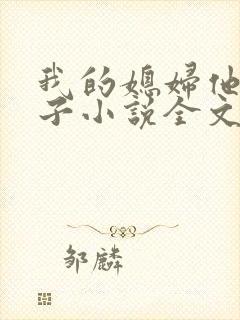 我的媳妇他
子小说全文
邹麟